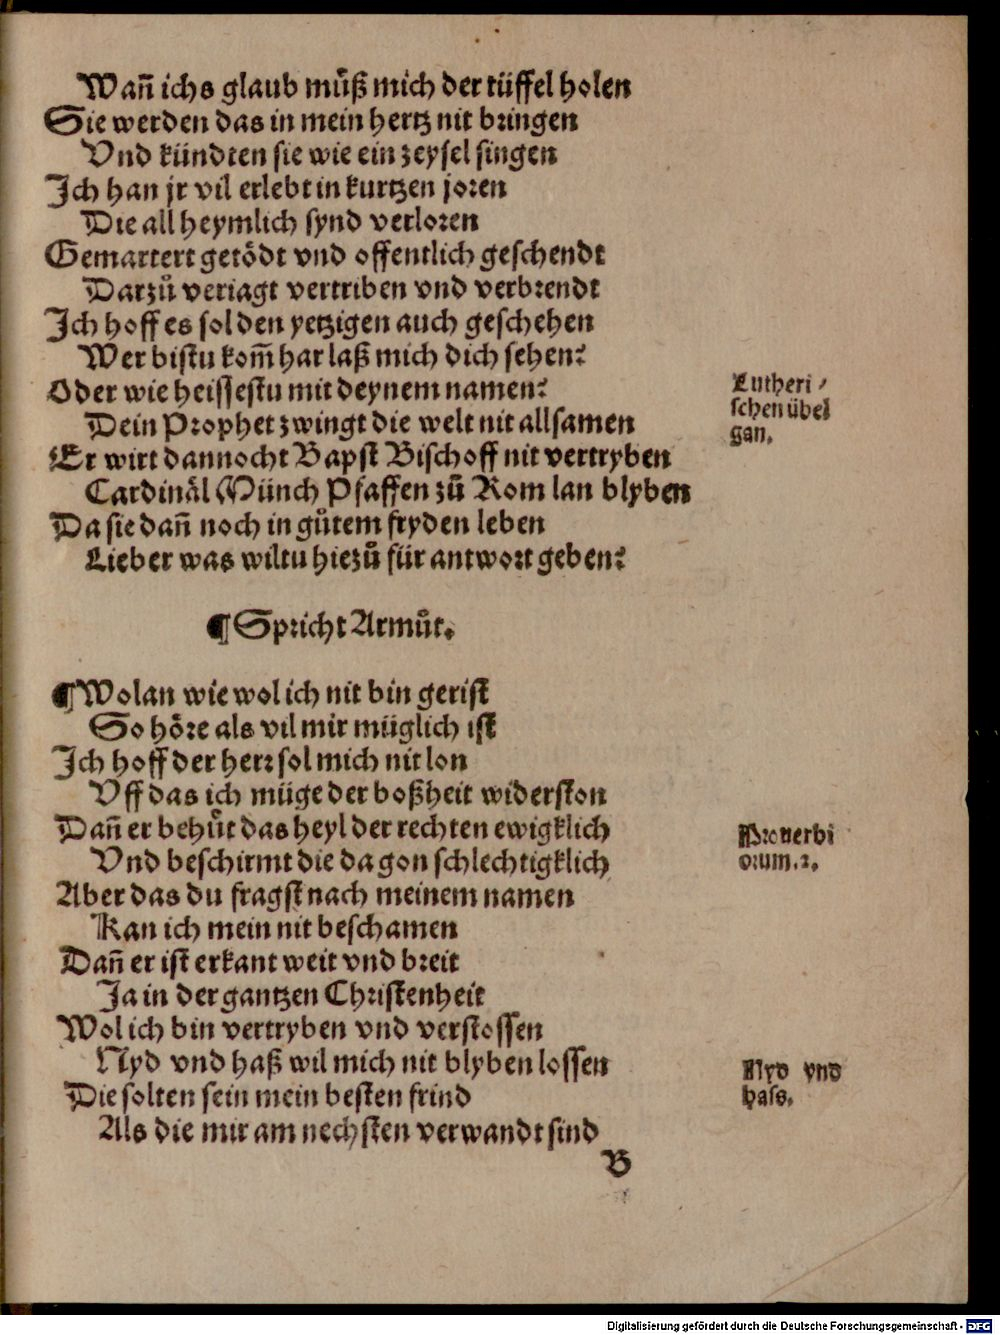 Wañ ichs glaub muͦß mich der tüffel holen
Sie werden das in mein hertz nit bringen
Vnd kündten sie wie ein zeysel singen
Ich han jr vil erlebt in kurtzen joren
Die all heymlich synd verloren
Gemartert getödt vnd offentlich geschendt
Darzuͦ veriagt vertriben vnd verbrendt
Ich hoff es sol den yetzigen auch geschehen
Wer bistu kom̃ har laß mich dich sehen?
Oder wie heissestu mit deynem namen?
Lutheri⸗
schen übel
gan.
Dein Prophet zwingt die welt nit allsamen
Er wirt dannocht Bapst Bischoff nit vertryben
Cardinäl Münch Pfaffen zuͦ Rom lan blyben
Da sie dañ noch in guͦtem fryden leben
Lieber was wiltu hiezuͦ für antwort geben?
¶Spricht Armuͦt.
¶Wolan wie wol ich nit bin gerist
So höre als vil mir müglich ist
Ich hoff der herr sol mich nit lon
Vff das ich müge der boßheit widerston
Dañ er behuͤt das heyl der rechten ewigklich
Vnd beschirmt die da gon schlechtigklich
Prouerbi
orum.2.
Aber das du fragst nach meinem namen
Kan ich mein nit beschamen
Dañ er ist erkant weit vnd breit
Ja in der gantzen Christenheit
Wol ich bin vertryben vnd verstossen
Nyd vnd haß wil mich nit blyben lossen
Nyd vnd
hass.
Die solten sein mein besten frind
Als die mir am nechsten verwandt sind
B
Digitalisierung gefördert durch die Deutsche Forschungsgemeinschaft - DFG